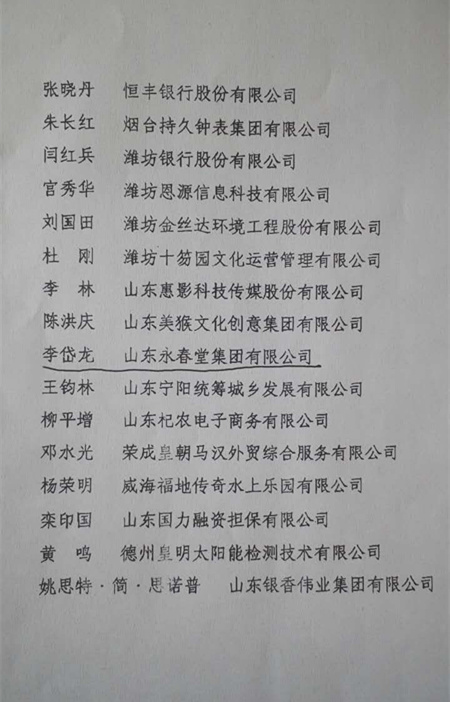 张晓丹 恒丰银行股份有限公司
朱长红 烟台持久钟表集团有限公司
闫红兵 潍坊银行股份有限公司
宫秀华 潍坊恩源信息科技有限公司
刘国田 潍坊金丝达环境工程股份有限公司
杜 刚 潍坊十笏园文化运营管理有限公司
李 林 山东惠影科技传媒股份有限公司
陈洪庆 山东美猴文化创意集团有限公司
李岱龙 山东永春堂集团有限公司
王钧林 山东宁阳统筹城乡发展有限公司
柳平增 山东杞农电子商务有限公司
邓水光 荣成皇朝马汉外贸综合服务有限公司
杨荣明 威海福地传奇水上乐园有限公司
栾印国 山东国力融资担保有限公司
黄 鸣 德州皇明太阳能检测技术有限公司
姚思特·简·思诺普 山东银香伟业集团有限公司